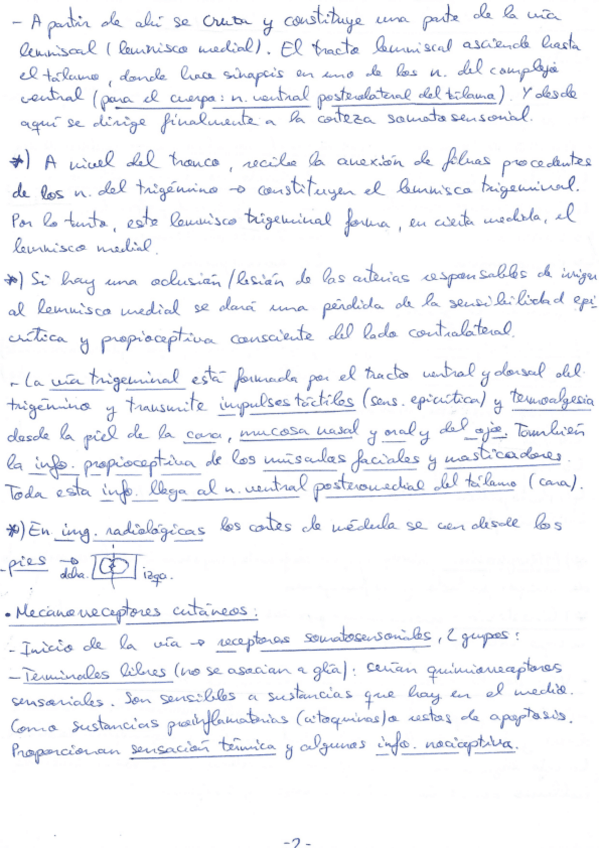 - A partir de ahí se cruza y constituye una parte de la vía
lemniscal (lemnisco medial). El tracto lemniscal asciende hasta
el tálamo, donde hace sinapsis en uno de los n. del complejo
ventral (para el cuerpo: n. ventral posterolateral del tálamo). Y desde
aquí se dirige finalmente a la corteza somatosensorial.
*) A nivel del tronco, recibe la anexión de fibras procedentes
de los n. del trigémino → constituyen el lemnisco trigeminal.
Por lo tanto, este lemnisco trigeminal forma, en cierta medida, el
lemnisco medial.
*) Si hay una oclusión/lesión de las arterias responsables de irrigar
al lemnisco medial se dará una pérdida de la sensibilidad epi
crítica y propioceptiva consciente del lado contralateral.
- La vía trigeminal está formada por el tracto ventral y dorsal del
trigémino y transmite impulsos táctiles (sens. epicrítica) y termoalgesia
desde la piel de la cara, mucosa nasal y oral y del ojo. También
la info. propioceptiva de los músculos faciales y masticadores.
Toda esta info. llega al n. ventral posteromedial del tálamo (cara).
*) En img. radiológicas los cortes de médula se ven desde los
pies → dcha. izqa.
• Mecanorreceptores cutáneos:
- Inicio de la vía → receptores somatosensoriales, 2 grupos:
- Terminales libres (no se asocian a glía): serían quimiorreceptores
sensoriales. Son sensibles a sustancias que hay en el medio.
Como sustancias proinflamatorias (citoquinas) o restos de apoptosis.
Proporcionan sensación térmica y algunos info. nociceptiva.
-2-